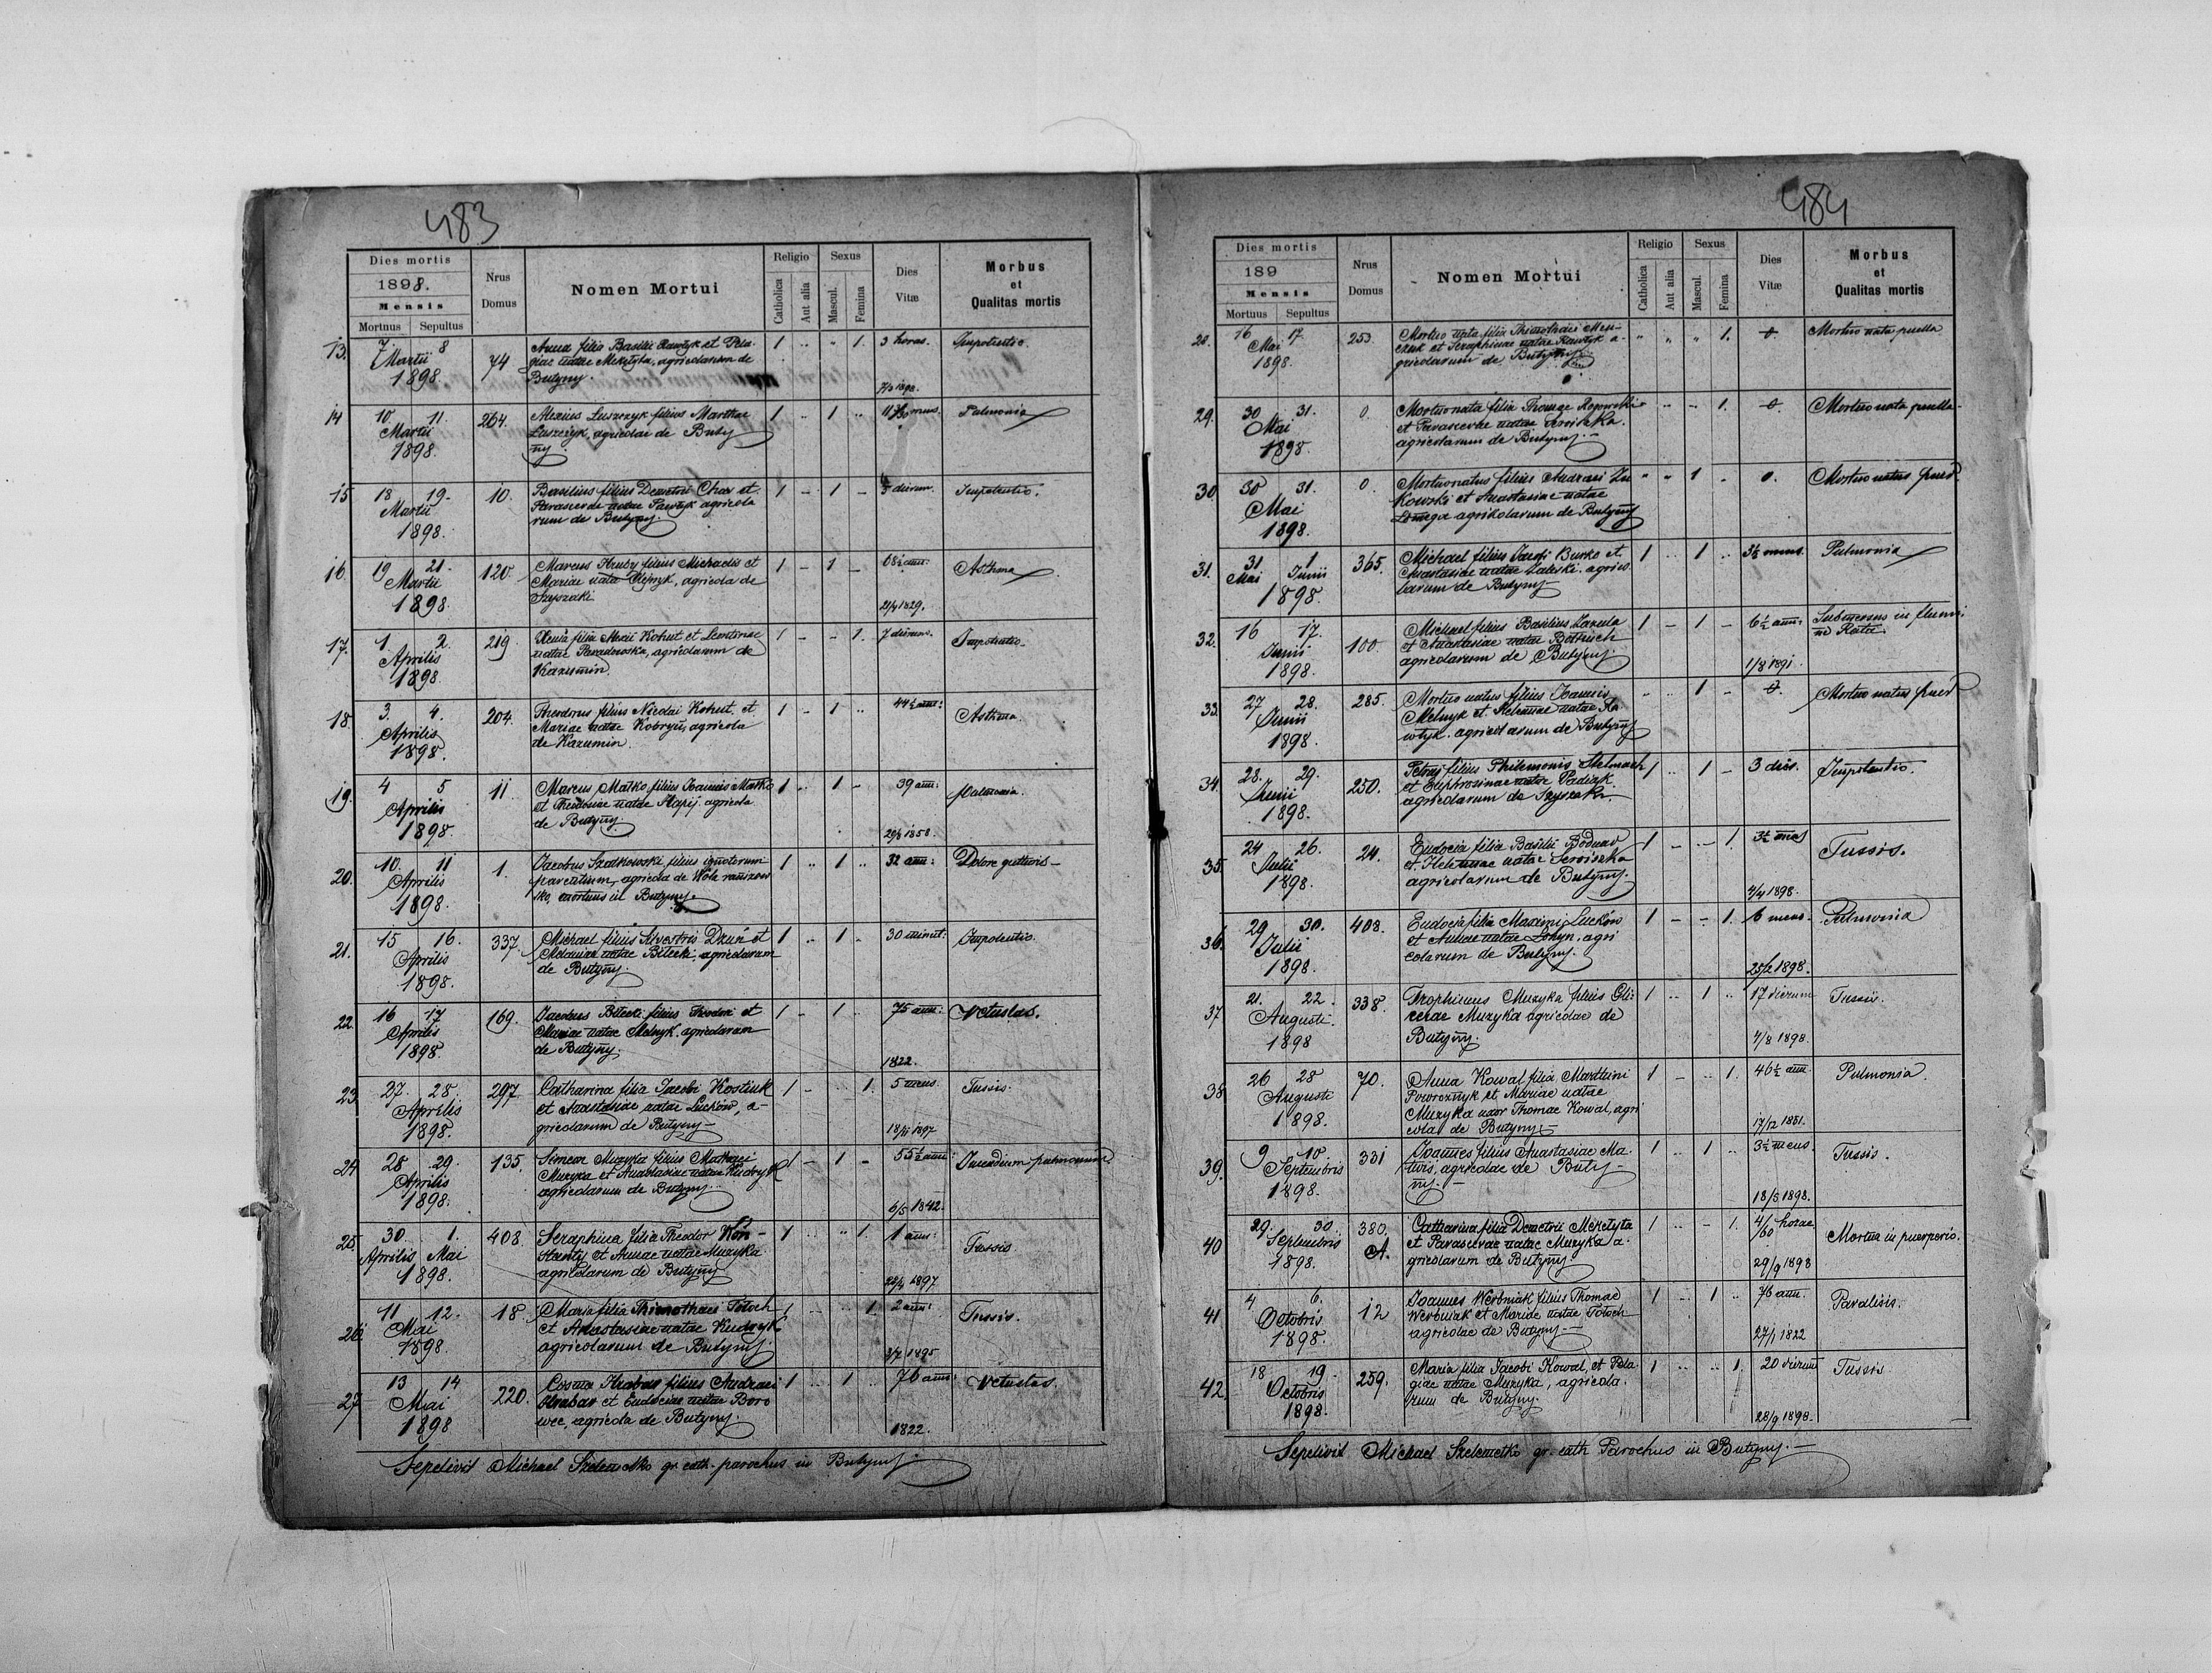 483
Dies mortis
1898.
Mensis
Mortuus Sepultus
Nrus
Domus
Nomen Mortui
Religio
Catholica
Aut alia
Sexus
Mascul.
Femina
Dies
Vitæ
Morbus
et
Qualitas mortis
13. 7. 8 Martii 1898. 74
Anna filia Basilii Rawłyk et Pela-
giae natae Meketyta, agricolarum de
Butyny.
1 " " 1. 3 horas. Impotentio.
7/3 1898.
14 10. 11. Martii 1898. 264.
Alexius Łuszczyk filius Marthae
Łuszczyk, agricolae de Buty
ny.
1 " 1 " mens. Pulmonia
15 18 19. Martii 1898. 10.
Basilius filius Demetrii Char et
Parascevae natae Pawłyk agricola
rum de Butyny.
1 - 1 - dierum. Impotentio.
16. 19 21. Martii 1898. 120.
Marcus Hruby filius Michaelis et
Mariae nata Olejnyk, agricola de
Szyszaki
1 - 1 - 68½ ann. Asthma
21/4 1829.
17. 1. 2. Aprilis 1898. 219.
Xenia filia Alexii Kohut et
natae Paradowska, agricolarum de
Kazumin.
1 - - 1. 7 dierum. Impotentio.
18. 3. 4. Aprilis 1898. 204.
Theodorus filius Nicolai Kohut et
Mariae natae Kobryn, agricola
de Kazumin.
1 - 1 " 44½ ann: Asthma.
19. 4 5 Aprilis 1898. 11.
Marcus Małko filius Ioannis Małko
et Theodosiae natae Hapij agricola
de Butyny.
1 " 1 - 39 ann: Pulmonia.
1858.
20. 10. 11 Aprilis 1898. 1.
Jacobus Szałkowski filius ignotorum
parentium, agricola de Wola
mortuus in Butyny.
1 " 1 " 32 ann: Dolore gutturis-
21. 15 16. Aprilis 1898. 337.
Michael filius Silvestris Dzuń et
Melaniae natae Bilecki, agricolarum
de Butyny.
1 " 1 - 30 minut: Impotentio.
22. 16 17 Aprilis 1898. 169.
Jacobus Bilecki filius Theodori et
Mariae natae Melnyk. agricolarum
de Butyny.
1 - 1 " 75 ann: Vetustas.
1822.
23. 27. 28. Aprilis 1898. 297.
Catharina filia Jacobi Kostiuk
et Anastasiae natae Luckow, a-
gricolarum de Butyny-
1 - " 1. 5 mens. Tussis.
18/11 1897
24 28 29. Aprilis 1898. 135.
Simeon Muzyka filius Mathaei
Muzyka et Anastasiae natae Kudryk
agricolarum de Butyny.
1 - 1 - 55½ ann: Incendium pulmonum
6/5 1842.
25. 30. 1. Aprilis Mai 1898. 408
Seraphina filia Theodor Kon-
stanty et Annae natae Muzyka
agricolarum de Butyny
1 " " 1. 1 ann: Tussis
1897
26. 11 12. Mai 1898. 18.
Maria filia Thimothaei Totoch
et Anastasiae natae Kudryk
agricolarum de Butyny
1 - " 1. 2 ann: Tussis.
1895
27 13 14 Mai 1898 220.
Cosma Hrabar filius Andraei
Hrabar et Eudociae natae Boro
wec, agricola de Butyny.
1 " 1 " 76 ann: Vetustas.
1822.
Sepelivit Michael Szelemetko gr. cath. parochus in Butyny.
484
Dies mortis
189
Mensis
Mortuus Sepultus
Nrus
Domus
Nomen Mortui
Religio
Catholica
Aut alia
Sexus
Mascul.
Femina
Dies
Vitæ
Morbus
et
Qualitas mortis
28. 16 17. Mai 1898. 253.
Mortuo nata filia Thimothaei Mel-
czuk et Seraphinae natae Rawłyk a-
gricolarum de Butyny.
" " " 1. 0. Mortuo nata puella
29. 30 31. Mai 1898. 0.
Mortuonata filia Thomae Ropowski
et Parascevae natae
agricolarum de Butyny.-
" " - 1. 0. Mortuo nata puella-
30 30 31. Mai 1898. 0.
Mortuonatus filius Andraei Zu
kowski et Anastasiae natae
Łomega agrikolarum de Butyny
" " 1 - 0. Mortuo natus puer
31. 31. 1 Mai Junii 1898. 365.
Michael filius Jacobi Burko et
Anastasiae natae Zaleski. agrico-
larum de Butyny
1 " 1 " 3½ mens. Pulmonia
32. 16 17. Junii 1898. 100.
Michael filius Basilius Łazula
et Anastasiae natae
agricolarum de Butyny.
1 - 1 - 6½ ann: Submersus in flumi
ne Rata.
1/8 1891.
33. 27 28. Junii 1898. 285.
Mortuo natus filius Ioannis
Melnyk et Helenae natae Ra
włyk. agricolarum de Butyny
" " 1 - 0. Mortuo natus puer
34. 28. 29. Junii 1898. 250.
Petrus filius Philemonis Stelmach
et Euphrosinae natae Padiak
agricolarum de Szyszaki.
1 " 1 - 3 dies. Impotentio.
35. 24 26. Julii 1898. 24.
Eudocia filia Basilii Bodnar
et Helenae natae Serwiszka
agricolarum de Butyny.
1 - - 1. 3½ mens Tussis.
4/4 1898.
36. 29 30. Julii 1898. 408.
Eudocia filia Maximi Luckow
et Annae natae Łohyn. agri
colarum de Butyny.
1 - - 1. 6 mens. Pulmonia
25/2 1898.
37 21. 22. Augusti. 1898 338.
Trophimus Muzyka filius Gli-
cerae Muzyka agricolae de
Butyny.
1 " 1 " 17 dierum Tussis.
4/8 1898.
38 26 28 Augusti 1898. 70.
Anna Kowal filia Marthini
Powroznyk et Mariae natae
Muzyka uxor Thomae Kowal, agri
cola de Butyny-
1 - " 1. 46½ ann. Pulmonia.
17/12 1851.
39. 9 10. Septembris 1898. 331
Joannes filius Anastasiae Ma-
twis, agricolae de Buty-
ny.-
1 " 1 " 3½ mens. Tussis.
18/5 1898.
40 29. 30. Septembris 1898. 380. A.
Catharina filia Demetrii Meketyta
et Parascevae natae Muzyka a-
gricolarum de Butyny.
1 " - 1. 4/60 horae Mortua in puerperio.
29/9 1898
41 4 6. Octobris 1898. 12
Ioannes Werbniak filius Thomae
Werbniak et Mariae natae Totoch
agricolae de Butyny.-
1 " 1 " 76 ann. Paralisis.
27/1 1822
42. 18 19. Octobris 1898. 259.
Maria filia Jacobi Kowal, et Pela-
giae natae Muzyka, agricola-
rum de Butyny.
1 " " 1. 20 dierum Tussis
28/9 1898.
Sepelivit Michael Szelemetko gr. cath. Parochus in Butyny.-